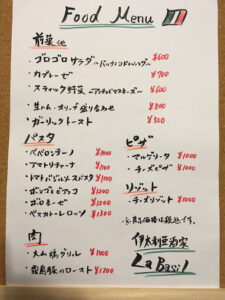 Food Menu
前菜 他
・ゴロゴロサラダ ~バルサミコドレッシング~ ¥600
・カプレーゼ ¥700
・スティック野菜 ~アンチョビマヨネーズ~ ¥600
・生ハム・オリーブ盛り合わせ ¥800
・ガーリックトースト ¥500
パスタ
・ペペロンチーノ
・アマトリチャーナ
・トマトバジルソースパスタ
・ボンゴレビアンコ ¥1200
・ボロネーゼ ¥1200
・ペスカトーレロッソ ¥1300
肉
・大山鶏グリル ¥1000
・霧島豚のロースト ¥1200
ピザ
・マルゲリータ ¥1000
・チーズピザ ¥1000
リゾット
・チーズリゾット ¥1000
※表示価格は税込です。
伊太利亜酒家
La Basil